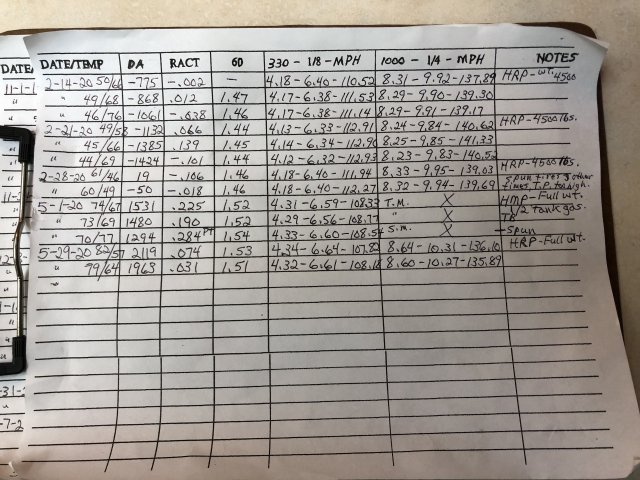 DATE/TEMP DA RACT 60 330 - 1/8 - MPH 1000 - 1/4 - MPH NOTES
2-14-20 50/66 -775 -.002 — 4.18 - 6.40 - 110.52 8.31 - 9.92 - 137.89 HRP - wt. 4500
" 49/68 -868 .012 1.47 4.17 - 6.38 - 111.53 8.29 - 9.90 - 139.30
" 46/76 -1061 -.038 1.46 4.17 - 6.38 - 111.14 8.29 - 9.91 - 139.17
2-21-20 49/58 -1132 .066 1.44 4.13 - 6.33 - 112.91 8.24 - 9.84 - 140.62 HRP - 4500 lbs.
" 45/66 -1385 .139 1.45 4.14 - 6.34 - 112.90 8.25 - 9.85 - 141.33
" 44/69 -1424 -.101 1.44 4.12 - 6.32 - 112.93 8.23 - 9.83 - 140.52
2-28-20 61/46 19 -.106 1.46 4.18 - 6.40 - 111.94 8.33 - 9.95 - 139.03 HRP - 4500 lbs.
" 60/49 -50 -.018 1.46 4.18 - 6.40 - 112.27 8.32 - 9.94 - 139.69 spun tires 3 other times, T.P. to high.
5-1-20 74/67 1531 .225 1.52 4.31 - 6.59 - 108.33 T.M. X HMP - Full wt.
" 73/69 1480 .190 1.52 4.29 - 6.56 - 108.77 " X 1/2 tank gas. TB
" 70/77 1294 .284 PT 1.54 4.33 - 6.60 - 108.54 S.M. X - Spun
5-29-20 82/57 2119 .074 1.53 4.34 - 6.64 - 107.82 8.64 - 10.31 - 136.10 HRP - Full wt.
" 79/64 1963 .031 1.51 4.32 - 6.61 - 108.18 8.60 - 10.27 - 135.89